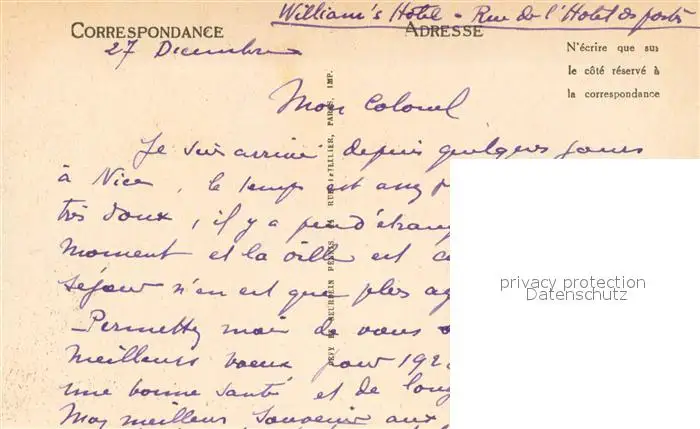 William's Hotel - Rue de l'Hotel des postes
CORRESPONDANCE
ADRESSE
27 Decembre
N'écrire que sur
le côté réservé à
la correspondance
Mon Colonel
Je suis arrivé depuis quelques jours
à Nice, le temps est
très doux, il y a peu d'étran
moment et la ville est
séjour n'en est que plus ag
Permettez moi de vous
meilleurs voeux pour 192
une bonne santé et de long
Mes meilleurs souvenirs aux
LEVY ET NEURDEIN REUNIS, 44 RUE LETELLIER, PARIS, IMP.
privacy protection
Datenschutz